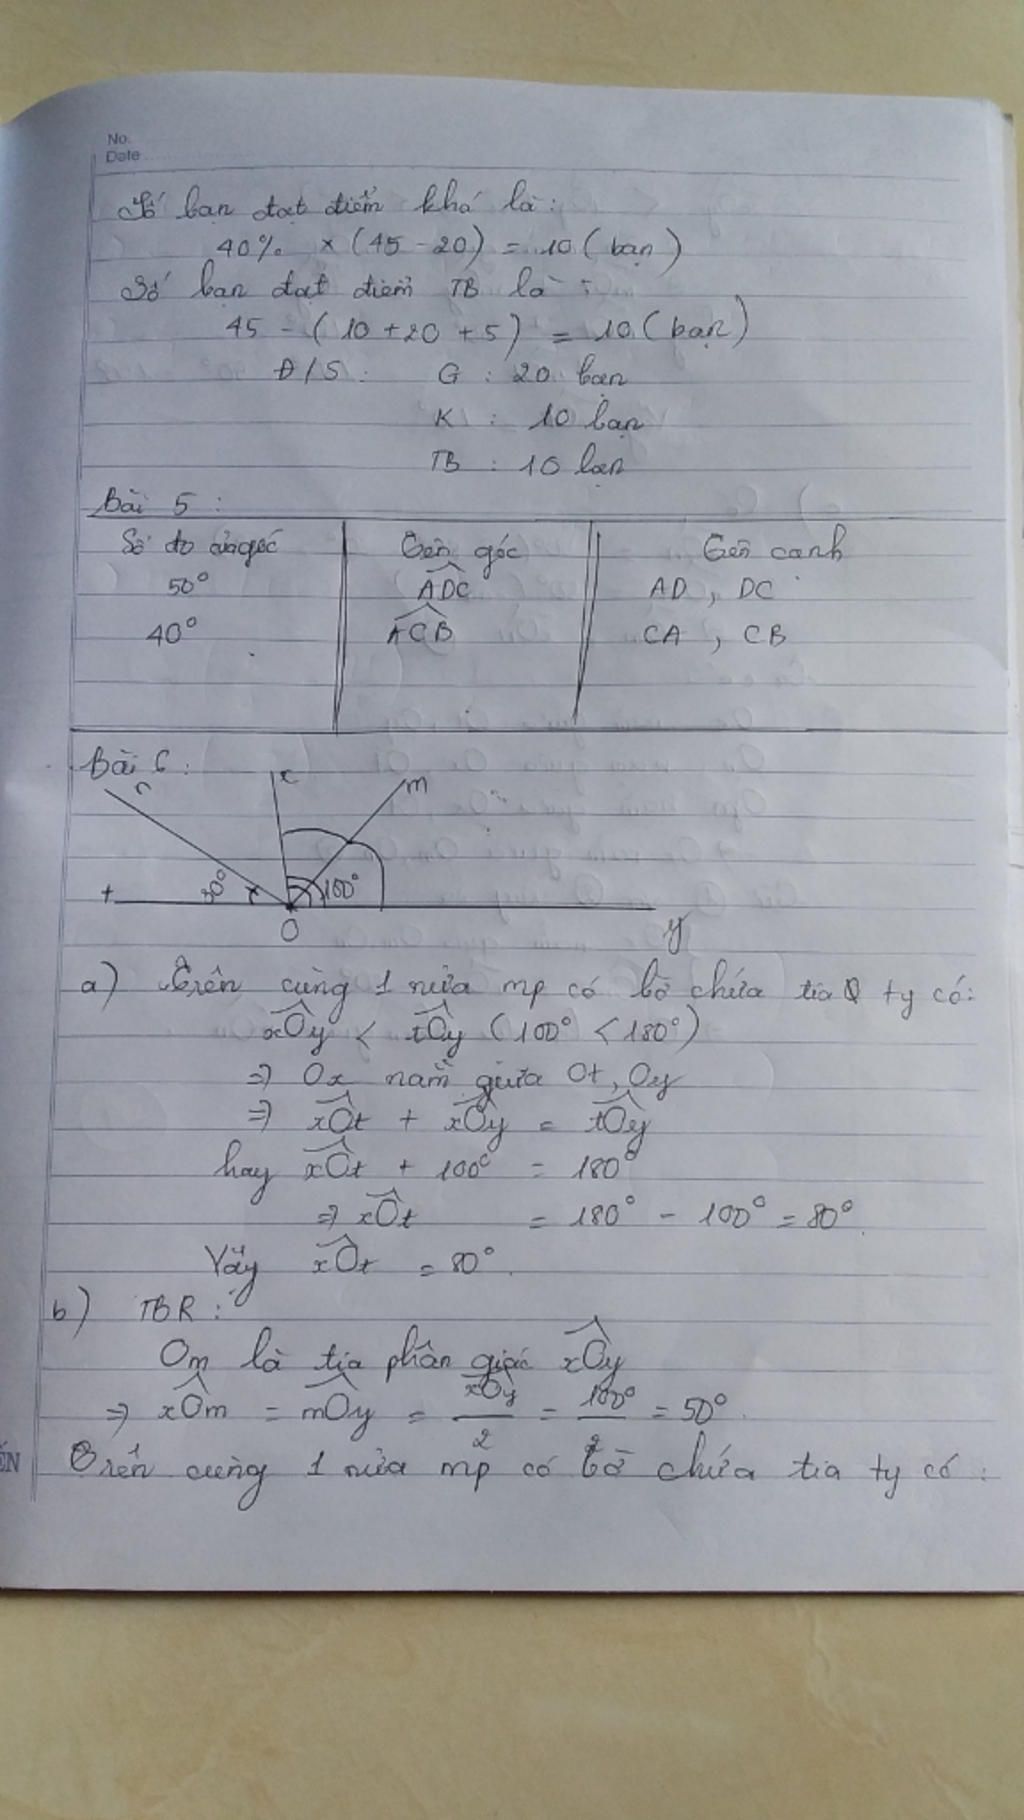 No.
Date
Số bạn đạt điểm khá là:
40% × (45 - 20) = 10 (bạn)
Số bạn đạt điểm TB là:
45 - (10 + 20 + 5) = 10 (bạn)
Đ/S: G : 20 bạn
K : 10 bạn
TB : 10 bạn
Bài 5 :
Số đo của góc Tên góc Tên cạnh
50° ADC AD , DC
40° ACB CA , CB
Bài 6 :
n x m
t 30° 100°
O y
a) Trên cùng 1 nửa mp có bờ chứa tia ty có:
xOy < tOy (100° < 180°)
=> Ox nằm giữa Ot, Oy
=> xOt + xOy = tOy
hay xOt + 100° = 180°
=> xOt = 180° - 100° = 80°.
Vậy xOt = 80°.
b) TBR :
Om là tia phân giác xOy
=> xOm = mOy = xOy/2 = 100°/2 = 50°.
Trên cùng 1 nửa mp có bờ chứa tia ty có :